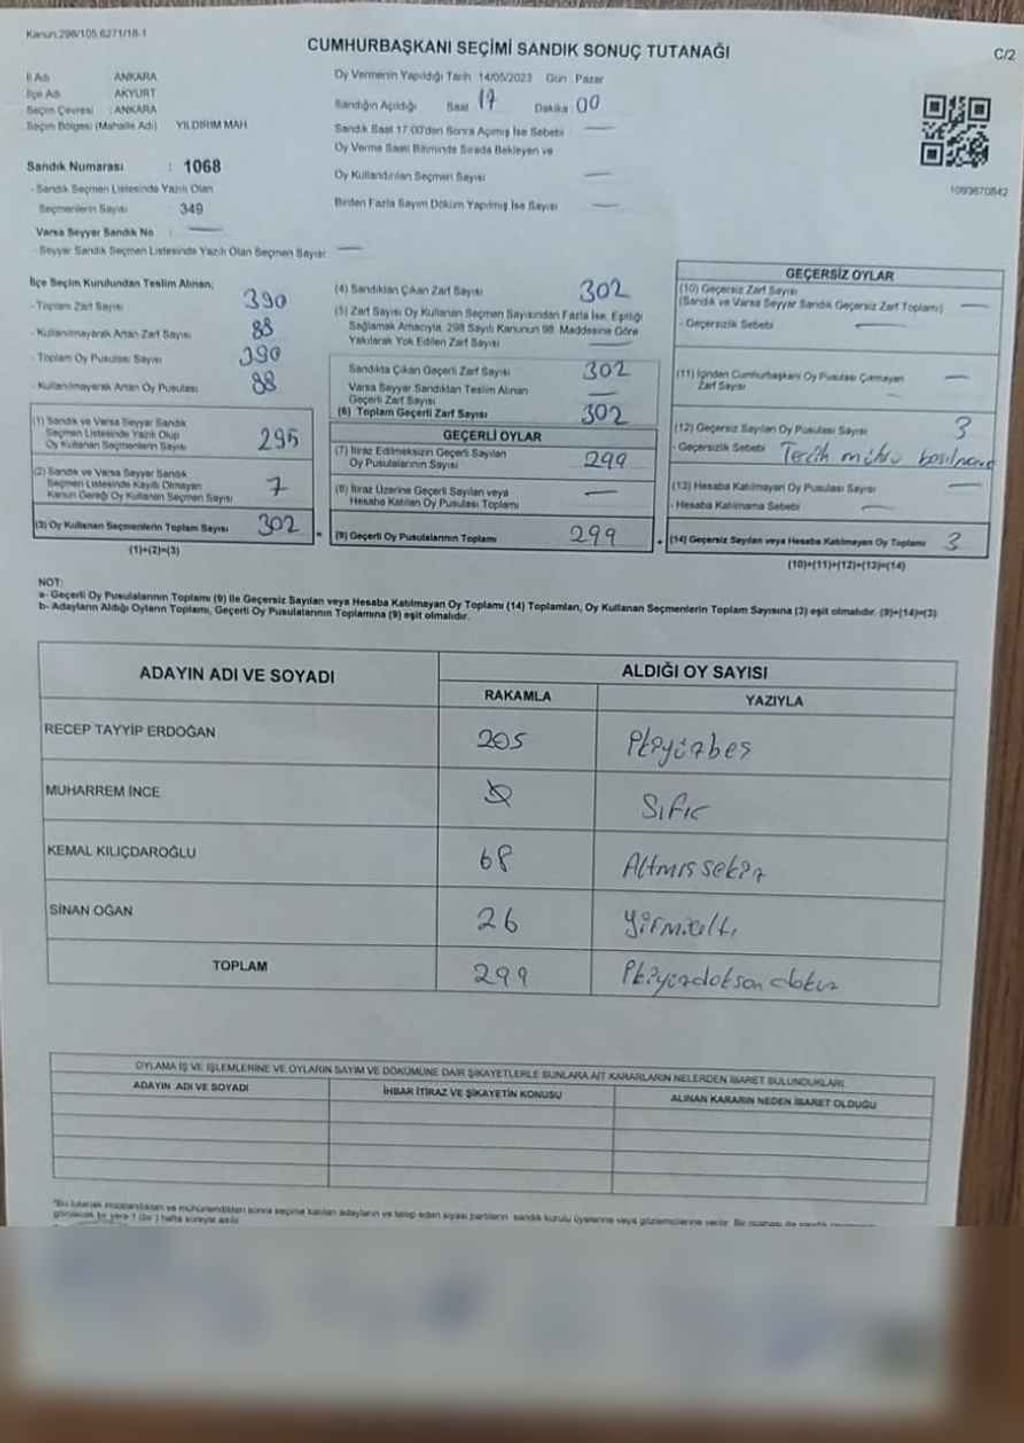 Kanun:298/105,6271/18-1
CUMHURBAŞKANI SEÇİMİ SANDIK SONUÇ TUTANAĞI
C/2
İl Adı ANKARA
İlçe Adı AKYURT
Seçim Çevresi : ANKARA
Seçim Bölgesi (Mahalle Adı) YILDIRIM MAH
Oy Vermenin Yapıldığı Tarih 14/05/2023 Gün Pazar
Sandığın Açıldığı Saat 17 Dakika 00
Sandık Saat 17:00'den Sonra Açılmış İse Sebebi —
Oy Verme Saati Bitiminde Sırada Bekleyen ve
Oy Kullandırılan Seçmen Sayısı —
Birden Fazla Sayım Döküm Yapılmış İse Sayısı —
1093670842
Sandık Numarası : 1068
- Sandık Seçmen Listesinde Yazılı Olan
Seçmenlerin Sayısı 349
Varsa Seyyar Sandık No : —
- Seyyar Sandık Seçmen Listesinde Yazılı Olan Seçmen Sayısı: —
İlçe Seçim Kurulundan Teslim Alınan;
- Toplam Zarf Sayısı 390
- Kullanılmayarak Artan Zarf Sayısı 88
- Toplam Oy Pusulası Sayısı 390
- Kullanılmayarak Artan Oy Pusulası 88
(1) Sandık ve Varsa Seyyar Sandık
Seçmen Listesinde Yazılı Olup
Oy Kullanan Seçmenlerin Sayısı 295
(2) Sandık ve Varsa Seyyar Sandık
Seçmen Listesinde Kayıtlı Olmayan
Kanun Gereği Oy Kullanan Seçmen Sayısı 7
(3) Oy Kullanan Seçmenlerin Toplam Sayısı 302
(1)+(2)=(3)
=
(4) Sandıktan Çıkan Zarf Sayısı 302
(5) Zarf Sayısı Oy Kullanan Seçmen Sayısından Fazla İse, Eşitliği
Sağlamak Amacıyla, 298 Sayılı Kanunun 98. Maddesine Göre
Yakılarak Yok Edilen Zarf Sayısı —
Sandıkta Çıkan Geçerli Zarf Sayısı 302
Varsa Seyyar Sandıktan Teslim Alınan
Geçerli Zarf Sayısı —
(6) Toplam Geçerli Zarf Sayısı 302
GEÇERLİ OYLAR
(7) İtiraz Edilmeksizin Geçerli Sayılan
Oy Pusulalarının Sayısı 299
(8) İtiraz Üzerine Geçerli Sayılan veya
Hesaba Katılan Oy Pusulası Toplamı —
(9) Geçerli Oy Pusulalarının Toplamı 299
+
GEÇERSİZ OYLAR
(10) Geçersiz Zarf Sayısı
(Sandık ve Varsa Seyyar Sandık Geçersiz Zarf Toplamı) —
- Geçersizlik Sebebi —
(11) İçinden Cumhurbaşkanı Oy Pusulası Çıkmayan
Zarf Sayısı —
(12) Geçersiz Sayılan Oy Pusulası Sayısı 3
- Geçersizlik Sebebi Tercih mührü
(13) Hesaba Katılmayan Oy Pusulası Sayısı —
- Hesaba Katılmama Sebebi —
(14) Geçersiz Sayılan veya Hesaba Katılmayan Oy Toplamı 3
(10)+(11)+(12)+(13)=(14)
NOT:
a- Geçerli Oy Pusulalarının Toplamı (9) ile Geçersiz Sayılan veya Hesaba Katılmayan Oy Toplamı (14) Toplamları, Oy Kullanan Seçmenlerin Toplam Sayısına (3) eşit olmalıdır. (9)+(14)=(3)
b- Adayların Aldığı Oyların Toplamı, Geçerli Oy Pusulalarının Toplamına (9) eşit olmalıdır.
ADAYIN ADI VE SOYADI
ALDIĞI OY SAYISI
RAKAMLA YAZIYLA
RECEP TAYYİP ERDOĞAN 205 İkiyüzbeş
MUHARREM İNCE 0 Sıfır
KEMAL KILIÇDAROĞLU 68 Altmışsekiz
SİNAN OĞAN 26 Yirmialtı
TOPLAM 299 İkiyüzdoksan dokuz
OYLAMA İŞ VE İŞLEMLERİNE VE OYLARIN SAYIM VE DÖKÜMÜNE DAİR ŞİKAYETLERLE BUNLARA AİT KARARLARIN NELERDEN İBARET BULUNDUKLARI
ADAYIN ADI VE SOYADI İHBAR İTİRAZ VE ŞİKAYETİN KONUSU ALINAN KARARIN NEDEN İBARET OLDUĞU